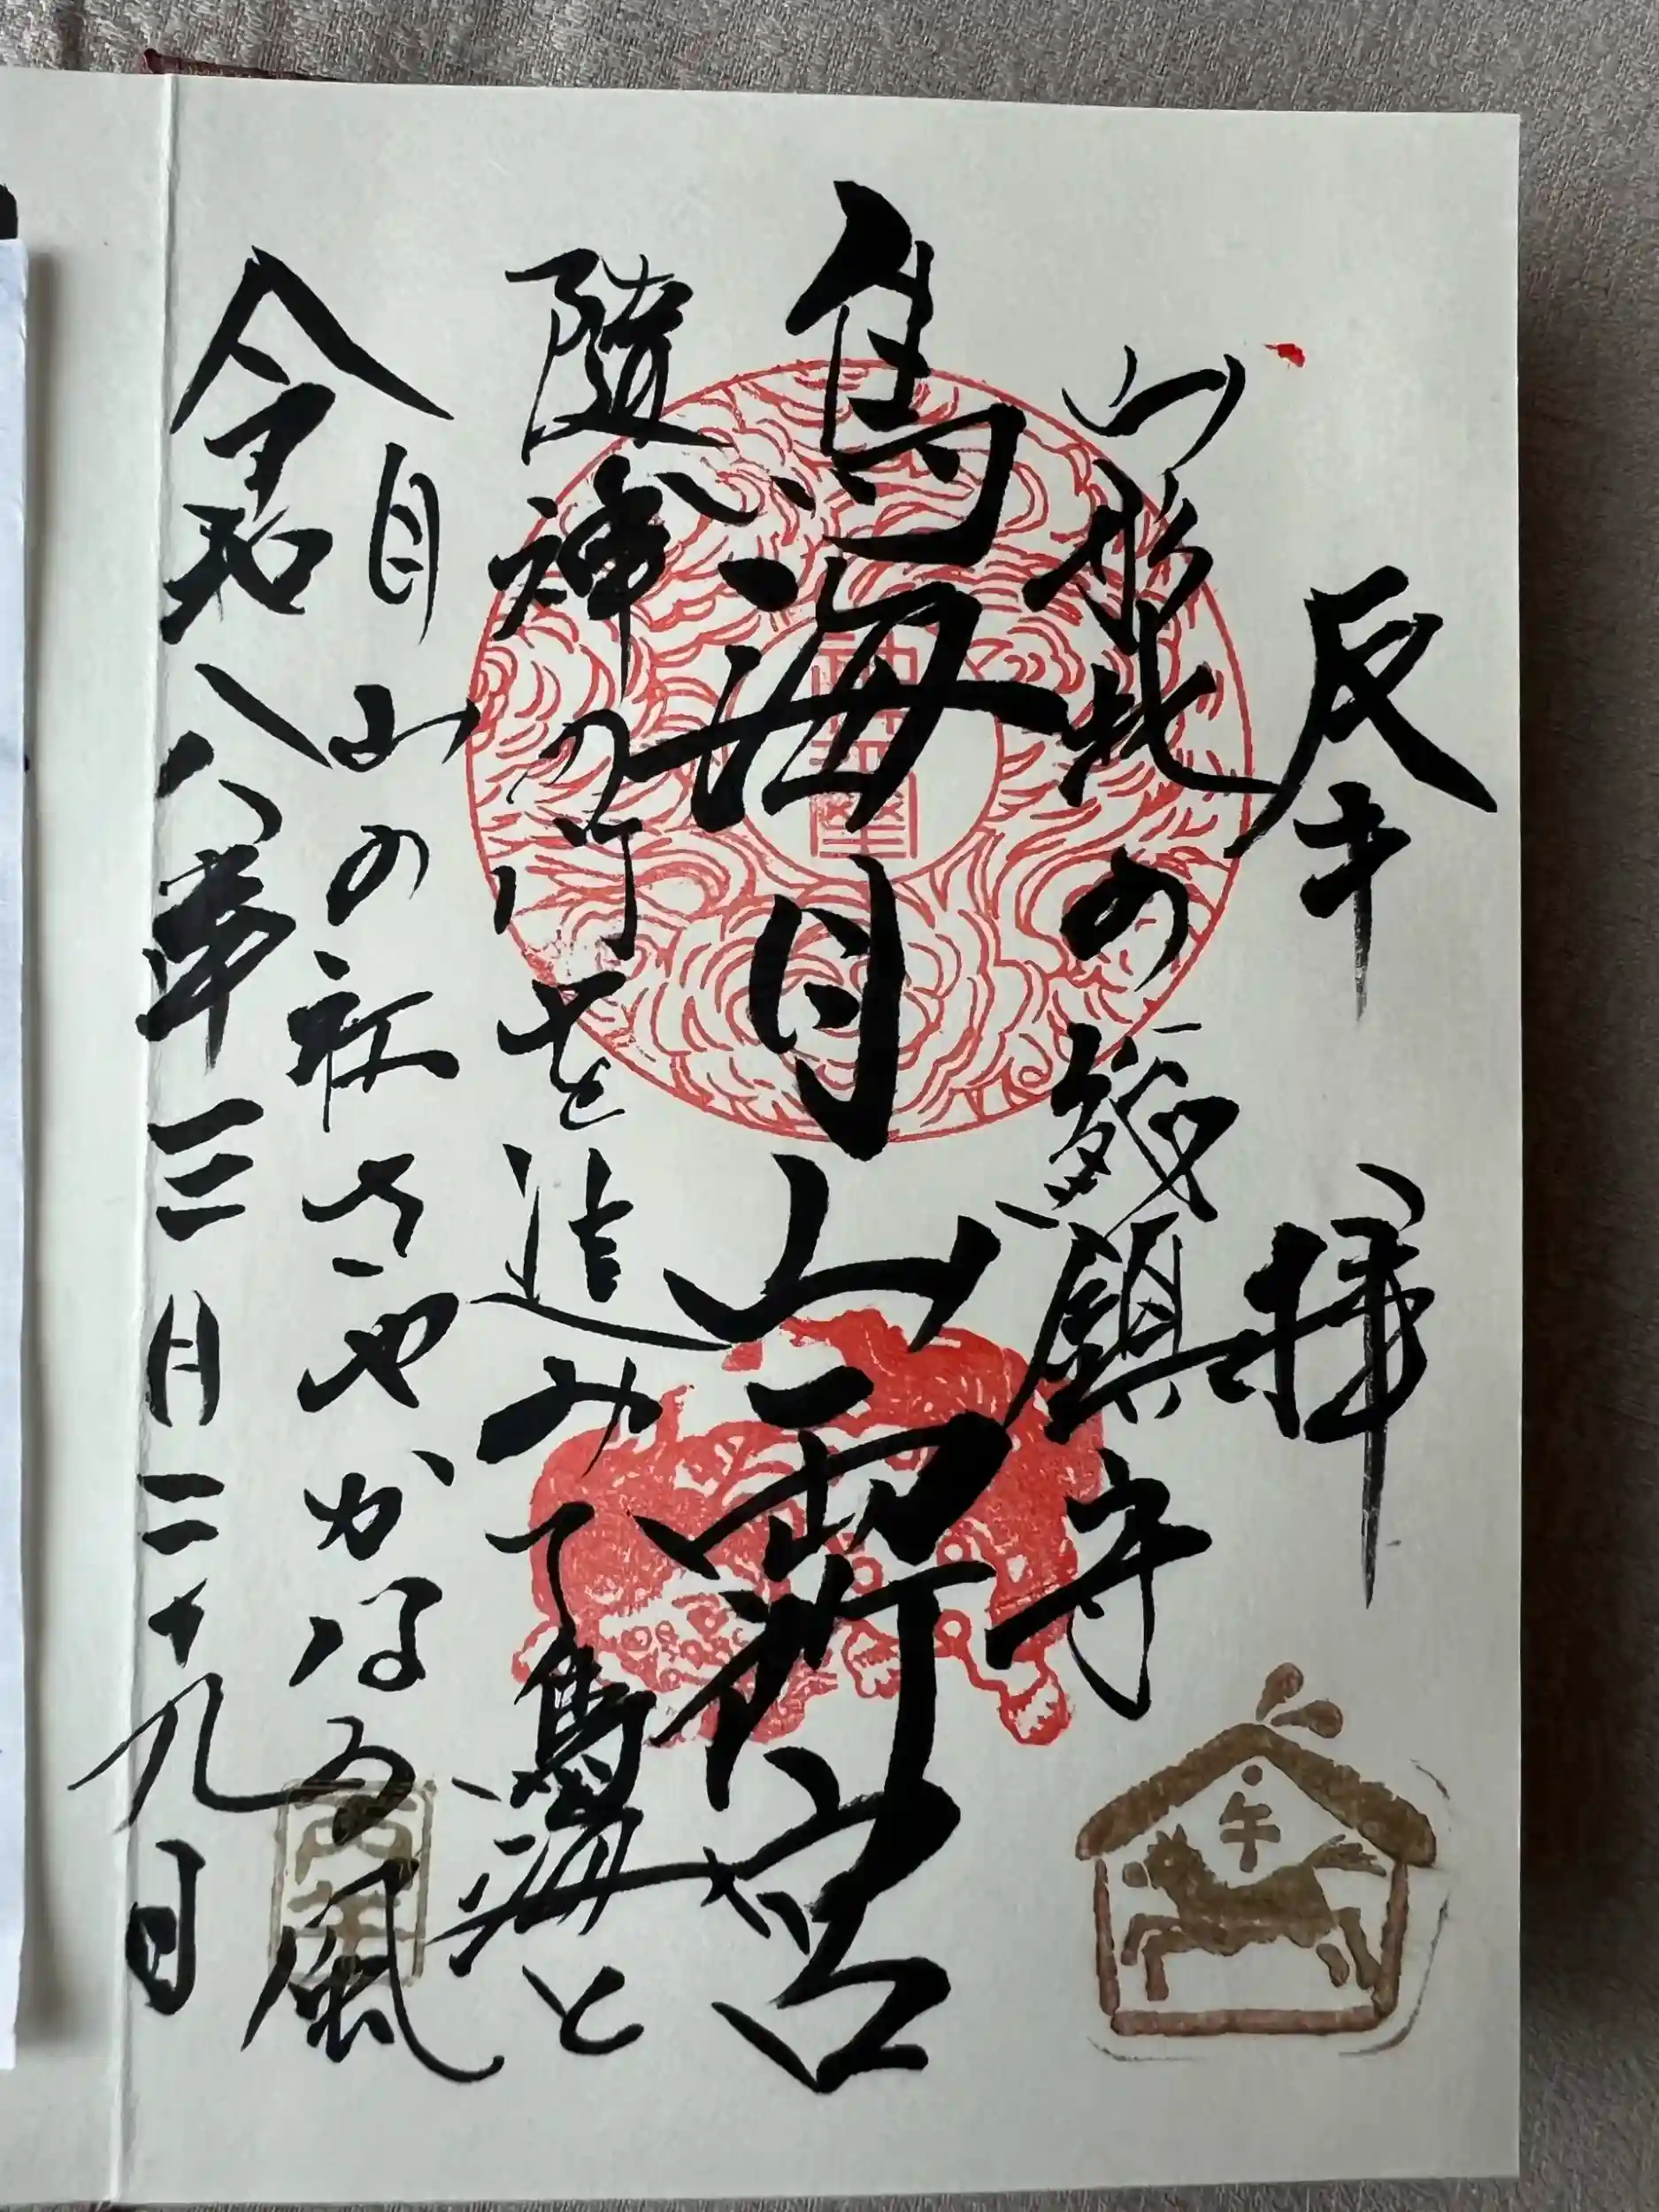 奉拝
山形北の総鎮守
鳥海月山両所宮
隨神の門を進みて鳥海と
月山の社さやかなる風
令和八年三月二十九日
午